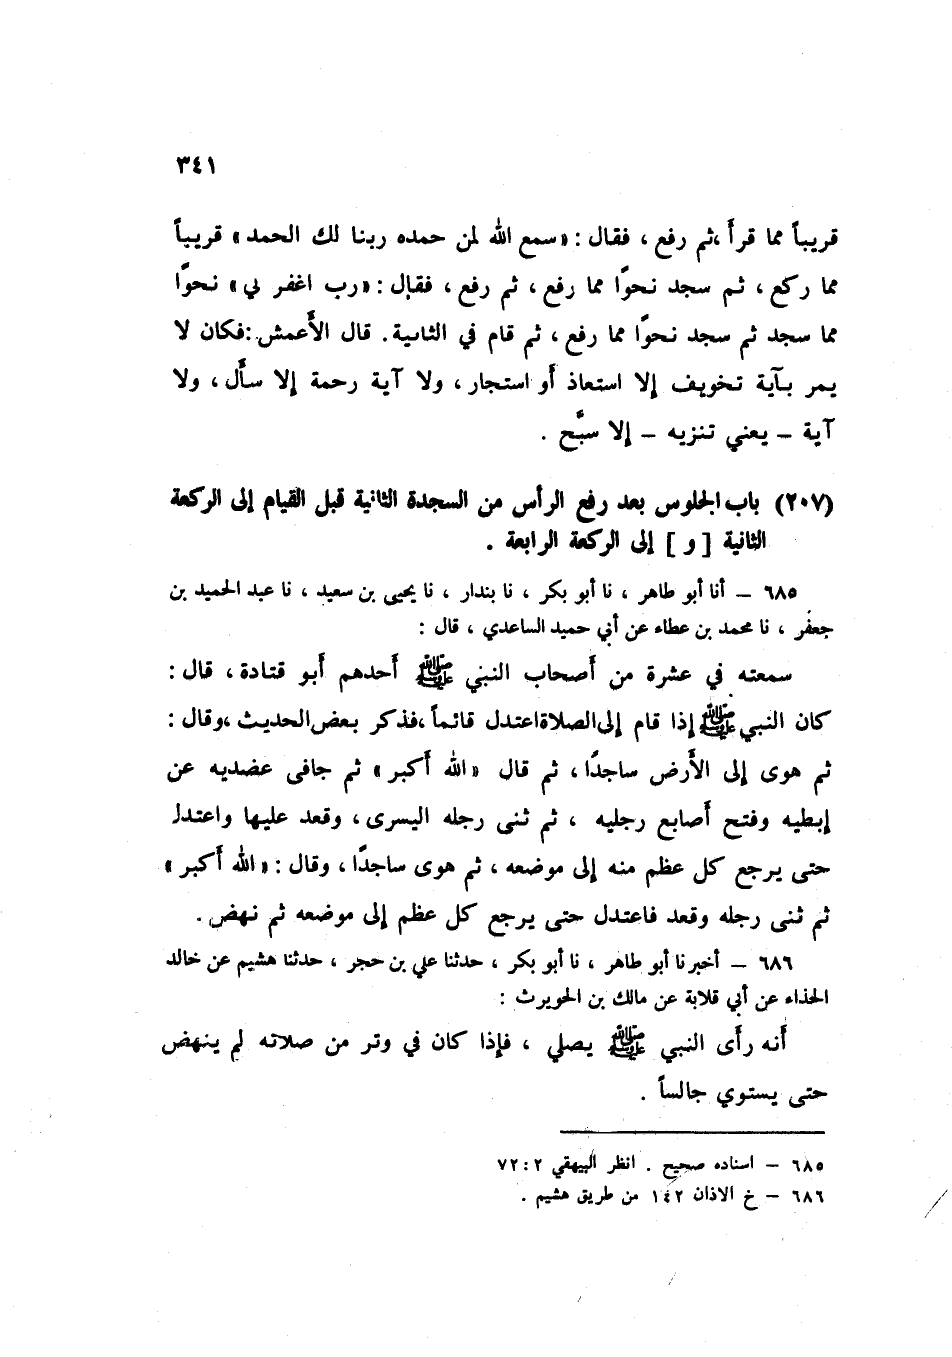 ٣٤١
قريباً مما قرأ ،ثم رفع ، فقال : «سمع الله لمن حمده ربنا لك الحمد» قريباً
مما ركع ، ثم سجد نحوًا مما رفع ، ثم رفع ، فقال : «رب اغفر لي» نحوًا
مما سجد ثم سجد نحوًا مما رفع ، ثم قام في الثانية. قال الأعمش :فكان لا
يمر بآية تخويف إلا استعاذ أو استجار ، ولا آية رحمة إلا سأل ، ولا
آية – يعني تنزيه – إلا سبَّح .
(٢٠٧) باب الجلوس بعد رفع الرأس من السجدة الثانية قبل القيام إلى الركعة
الثانية [ و ] إلى الركعة الرابعة .
٦٨٥ – أنا أبو طاهر ، نا أبو بكر ، نا بندار ، نا يحيى بن سعيد ، نا عبد الحميد بن
جعفر ، نا محمد بن عطاء عن أبي حميد الساعدي ، قال :
سمعته في عشرة من أصحاب النبي ﷺ أحدهم أبو قتادة ، قال :
كان النبي ﷺ إذا قام إلى الصلاة اعتدل قائماً ،فذكر بعض الحديث ،وقال :
ثم هوى إلى الأرض ساجدًا ، ثم قال «الله أكبر» ثم جافى عضديه عن
إبطيه وفتح أصابع رجليه ، ثم ثنى رجله اليسرى ، وقعد عليها واعتدل
حتى يرجع كل عظم منه إلى موضعه ، ثم هوى ساجدًا ، وقال : «الله أكبر»
ثم ثنى رجله وقعد فاعتدل حتى يرجع كل عظم إلى موضعه ثم نهض .
٦٨٦ – أخبرنا أبو طاهر ، نا أبو بكر ، حدثنا علي بن حجر ، حدثنا هشيم عن خالد
الحذاء عن أبي قلابة عن مالك بن الحويرث :
أنه رأى النبي ﷺ يصلي ، فإذا كان في وتر من صلاته لم ينهض
حتى يستوي جالساً .
٦٨٥ – اسناده صحيح . انظر البيهقي ٢ : ٧٢
٦٨٦ – خ الاذان ١٤٢ من طريق هشيم .